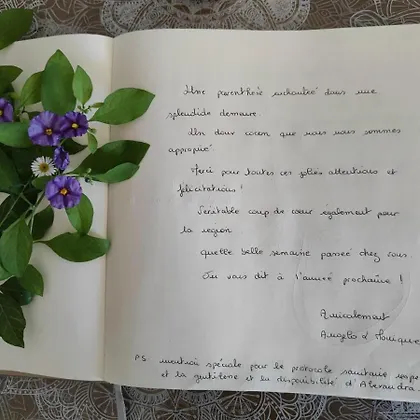 Une parenthèse enchantée dans une
splendide demeure.
Un doux cocon que nous nous sommes
approprié.
Merci pour toutes ces jolies attentions et
félicitations !
Véritable coup de cœur également pour
la région.
Quelle belle semaine passée chez vous.
vous dit à l'année prochaine !
Amicalement
Angelo & Monique
PS: mention spéciale pour le protocole sanitaire
et la gentillesse et la disponibilité d'Alexandra